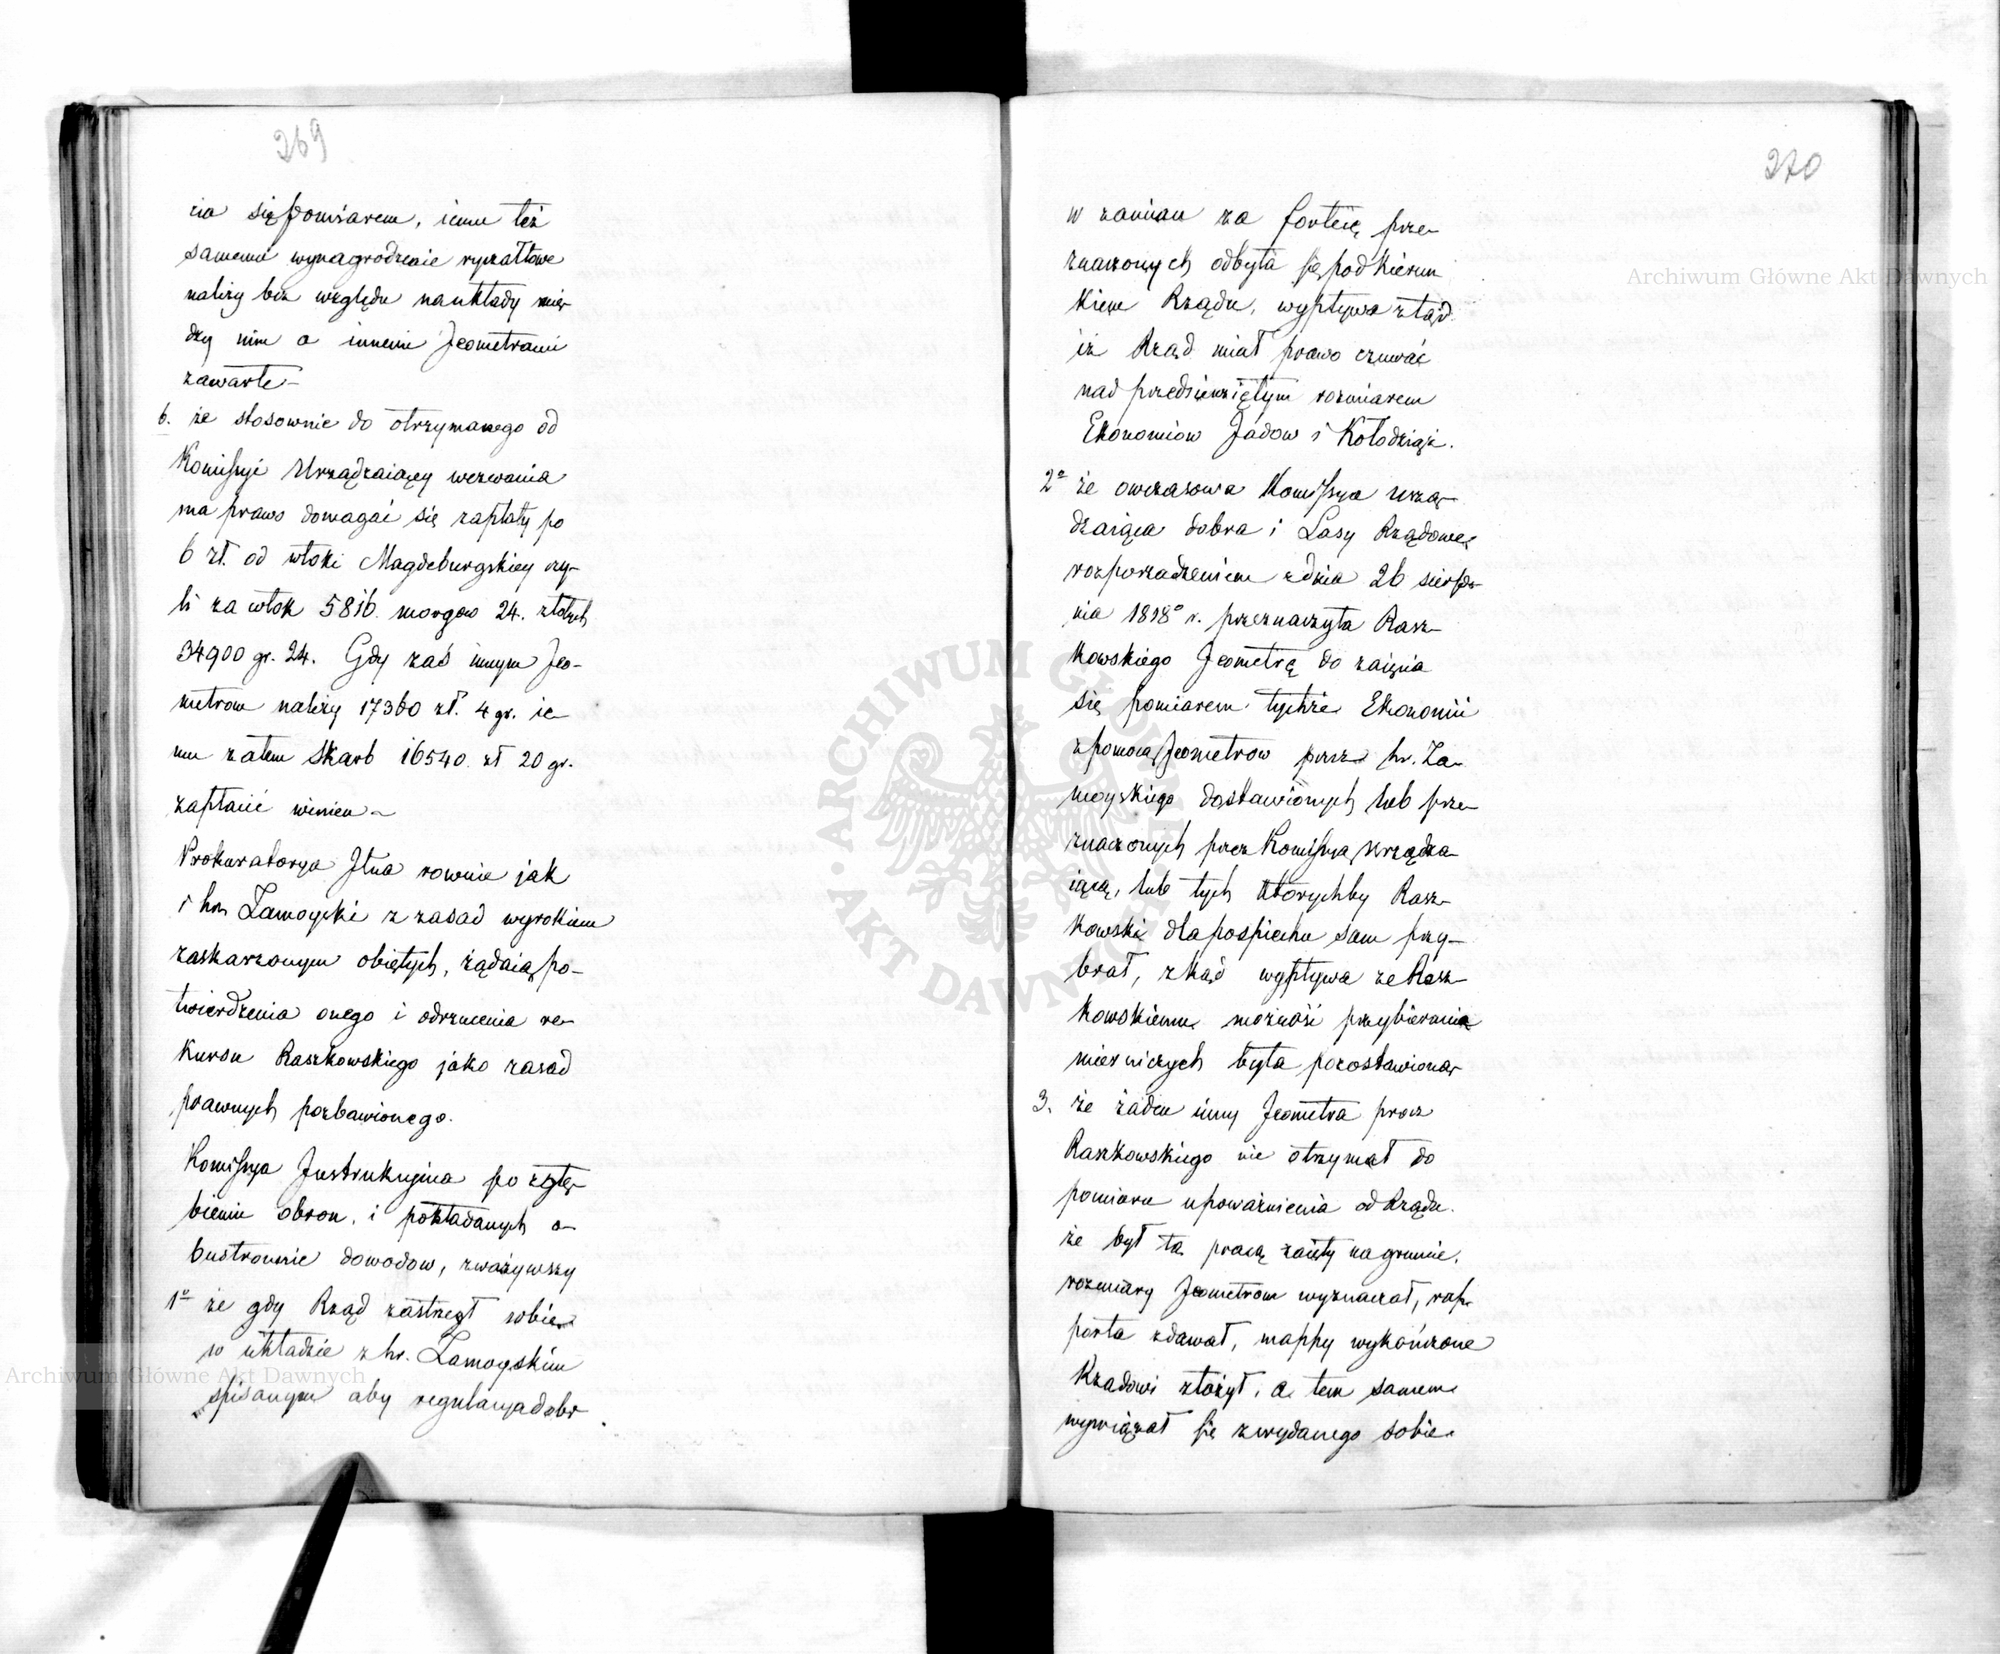 269
cia się pomiarem, iemu też
samemu wynagrodzenie ryczałtowe
należy bez względu na układy mię-
dzy nim a innemi Jeometrami
zawarte–
6. że stosownie do otrzymanego od
Komissyi Urządzaiącey wezwania
ma prawo domagać się zapłaty po
6 zł. od włoki Magdeburgskiey czy-
li za włok 5816. morgow 24. złotych
34900 gr. 24. Gdy zaś innym Jeo-
metrom należy 17360 zł. 4 gr. ie-
mu zatem Skarb 16540. zł 20 gr.
zapłacić winien–
Prokuratorya Jlna rownie jak
i hr. Zamoyski z zasad wyrokiem
zaskarzonym obiętych, żądaią po-
twierdzenia onego i odrzucenia re-
kursu Raszkowskiego jako zasad
prawnych pozbawionego.
Komissya Instrukcyjna po zgłę-
bieniu obron, i pokładanych o-
bustronnie dowodow, zważywszy
1º że gdy Rząd zastrzegł sobie
w układzie z hr. Zamoyskim
spisanym aby regulacya dobr
270
w zamian za fortecę prze-
znaczonych odbyta się pod kierun
kiem Rządu, wypływa ztąd
iż Rząd miał prawo czuwać
nad przedsięwziętym rozmiarem
Ekonomiow Jadow i Kołodziąż.
2º że owczasowa Komissya urzą-
dzaiąca dobra i Lasy Rządowe
rozporządzeniem z dnia 26 sierp-
nia 1818º r. przeznaczyła Rasz-
kowskiego Jeometrę do zaięcia
się pomiarem tychże Ekonomii
z pomocą Jeometrow przez hr. Za-
moyskiego dostawionych lub prze-
znaczonych przez Komissyą urządza-
iącą, lub tych którychby Rasz-
kowski dla pospiechu sam przy-
brał, zkąd wypływa że Rasz-
kowskiemu możność przybierania
mierniczych była pozostawiona
3. że żaden inny Jeometra procz
Raszkowskiego nie otrzymał do
pomiaru upoważnienia od Rządu.
że był tą pracą zaięty na gruncie,
rozmiary Jeometrom wyznaczał, rap-
porta zdawał, mappy wykończone
Rządowi złożył, a tem samem
wywiązał się z wydanego sobie
Archiwum Główne Akt Dawnych
Archiwum Główne Akt Dawnych
ARCHIWUM GŁÓWNE AKT DAWNYCH